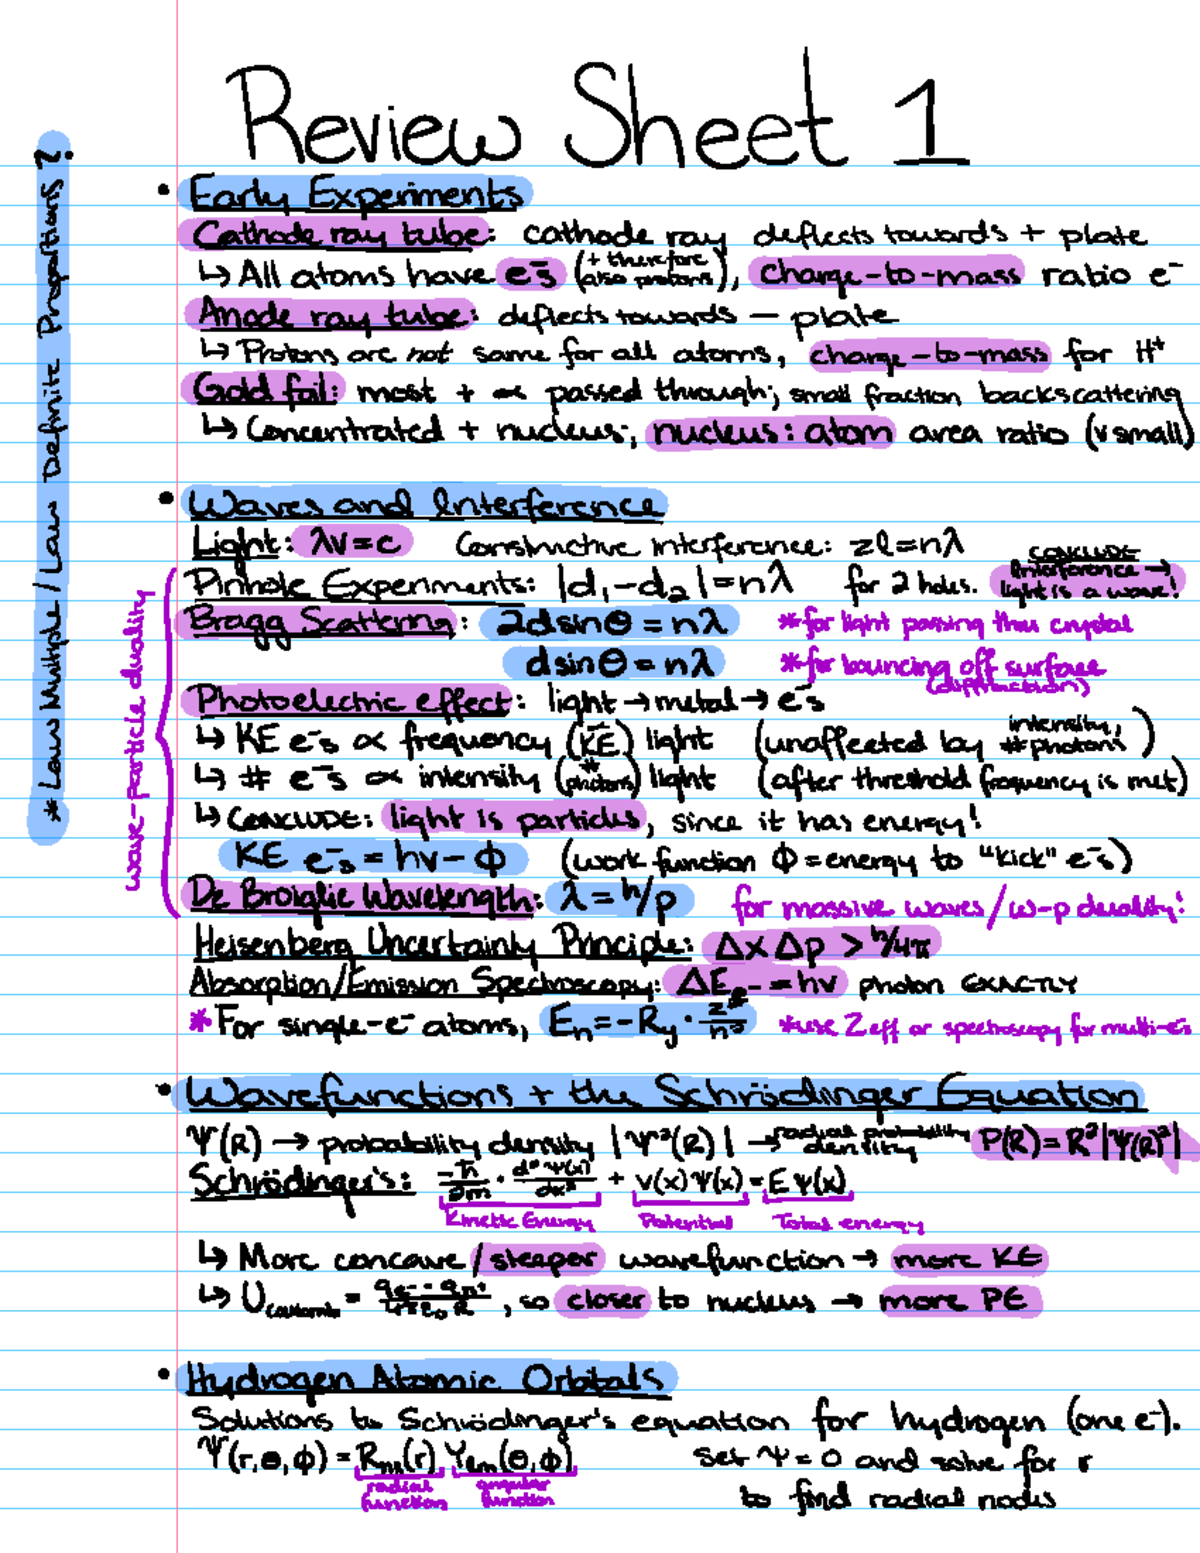 Review Sheet 1
* Law Multiple / Law Definite Proportions?
• Early Experiments
Cathode ray tube: cathode ray deflects towards + plate
↳ All atoms have e⁻s (+ therefore also protons), charge-to-mass ratio e⁻
Anode ray tube: deflects towards — plate
↳ Protons are not same for all atoms, charge-to-mass for H⁺
Gold foil: most + ∝ passed through; small fraction backscattering
↳ Concentrated + nucleus; nucleus: atom area ratio (v small)
• Waves and Interference
Light: λν=c Constructive interference: 2l=nλ
CONCLUDE
Interference →
light is a wave!
Pinhole Experiments: |d₁-d₂|=nλ for 2 holes.
wave-particle duality
Bragg Scattering: 2dsinθ=nλ *for light passing thru crystal
dsinθ=nλ *for bouncing off surface
(diffraction)
Photoelectric effect: light → metal → e⁻s
↳ KE e⁻s ∝ frequency (KE) light (unaffected by intensity, # photons)
↳ # e⁻s ∝ intensity (# photons) light (after threshold frequency is met)
↳ CONCLUDE: light is particles, since it has energy!
KE e⁻s = hν - ϕ (work function ϕ = energy to "kick" e⁻s)
De Broglie Wavelength: λ = h/p for massive waves/w-p duality!
Heisenberg Uncertainty Principle: Δx Δp > h/4π
Absorption/Emission Spectroscopy: ΔE e⁻ = hν photon EXACTLY
* For single-e⁻ atoms, Eₙ=-Ry · z²/n² *use Zeff or spectroscopy for multi-e⁻s
• Wavefunctions + the Schrödinger Equation
Ψ(R) → probability density |Ψ²(R)| → radial probability density P(R)=R²|Ψ(R)²|
Schrödinger's: -ħ/2m · d²Ψ(x)/dx² + v(x)Ψ(x) = EΨ(x)
Kinetic Energy Potential Total energy
↳ More concave/steeper wavefunction → more KE
↳ U coulombic = qe⁻·qp⁺/4πε₀R, so closer to nucleus → more PE
• Hydrogen Atomic Orbitals
Solutions to Schrödinger's equation for hydrogen (one e⁻).
Ψ(r,θ,ϕ) = Rₙₗ(r) Yₗₘ(θ,ϕ) set Ψ=0 and solve for r
radial function angular function to find radial nodes